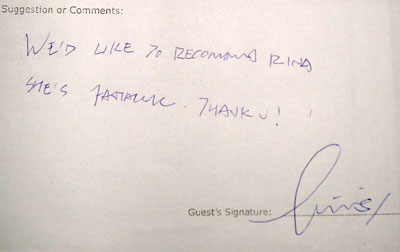 Suggestion or Comments:
WE'D LIKE TO RECOMMEND RINA
SHE'S FANTASTIC. THANK U!
Guest's Signature: